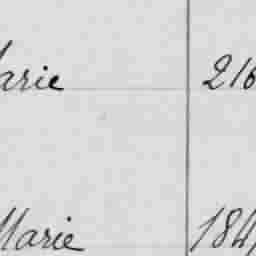 Marie 216
Marie 184